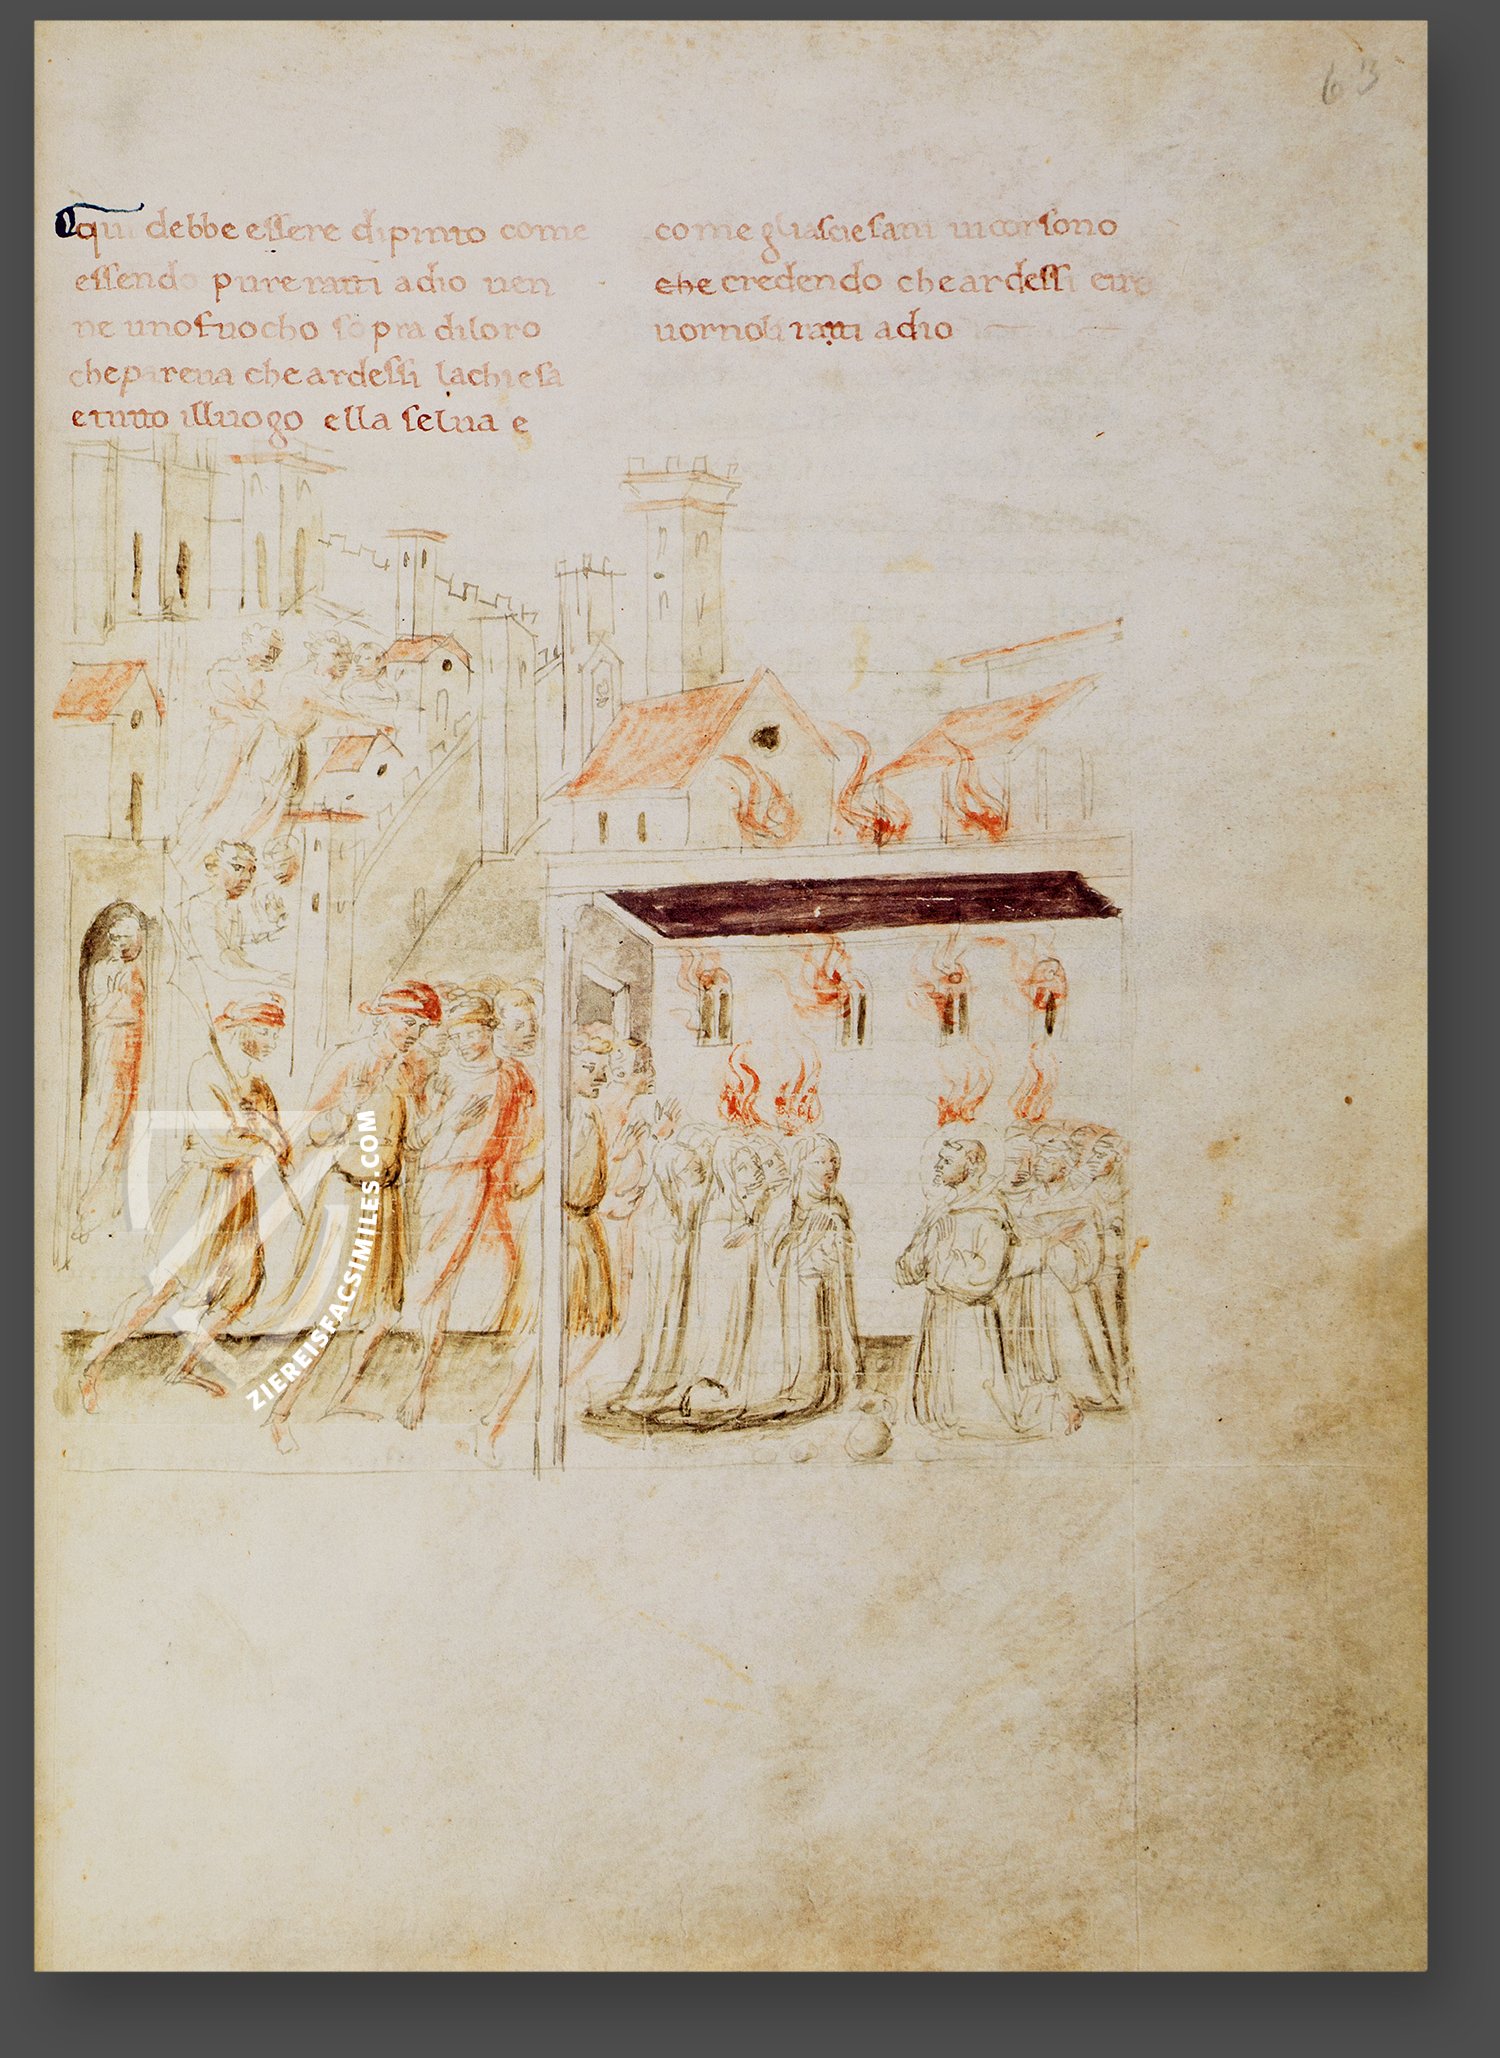 63
qui debbe essere dipinto come
essendo pure ratti adio uen
ne uno fuocho sopra diloro
che pareua che ardessi lachiesa
e tutto illuogo ella selua e
come gliasciesani uicorsono
che credendo che ardessi e
uornoli ratti adio
ZIEREISFACSIMILES.COM